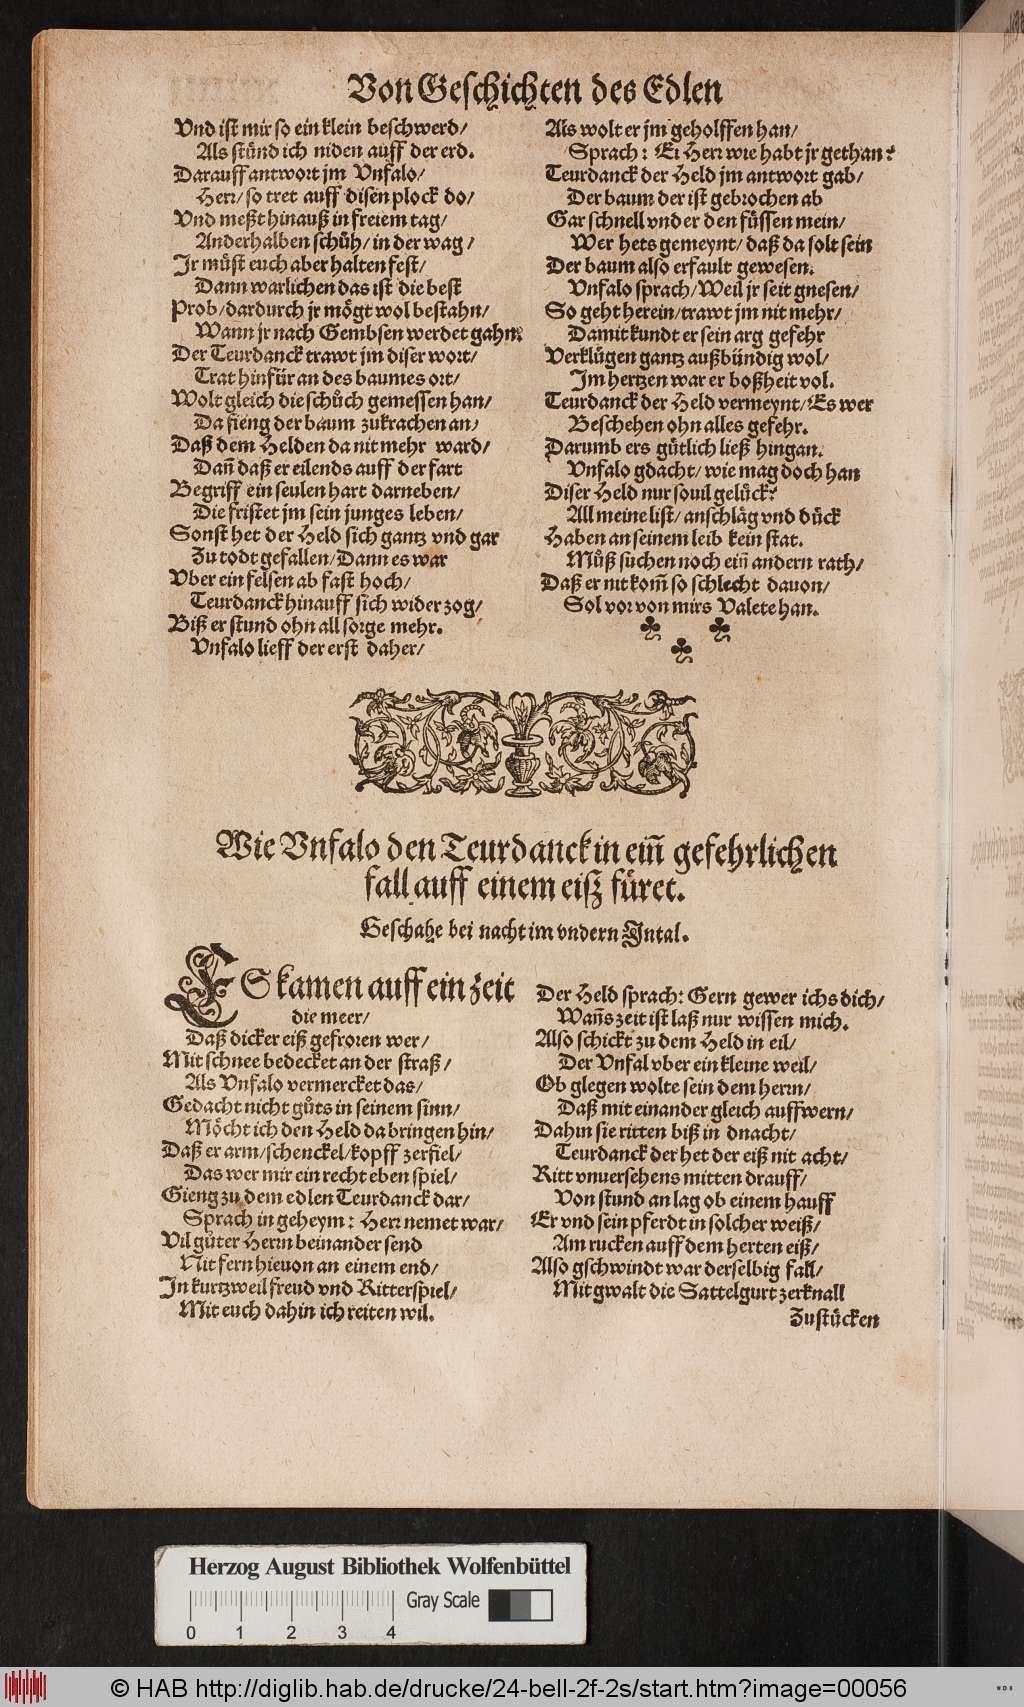 Von Geschichten des Edlen
Vnd ist mir so ein klein beschwerd/
Als stünd ich niden auff der erd.
Darauff antwort jm Vnfalo/
Herr/ so tret auff disen plock do/
Vnd meßt hinauß in freiem tag/
Anderhalben schüh/ in der wag/
Jr müst euch aber halten fest/
Dann warlichen das ist die best
Prob/ dardurch jr mögt wol bestahn/
Wann jr nach Gembsen werdet gahn.
Der Teurdanck trawt jm diser wort/
Trat hinfür an des baumes ort/
Wolt gleich die schůch gemessen han/
Da fieng der baum zukrachen an/
Daß dem Helden da nit mehr ward/
Dañ daß er eilends auff der fart
Begriff ein seulen hart darneben/
Die fristet jm sein junges leben/
Sonst het der Held sich gantz vnd gar
Zu todt gefallen/ Dann es war
Vber ein felsen ab fast hoch/
Teurdanck hinauff sich wider zog/
Biß er stund ohn all sorge mehr.
Vnfalo lieff der erst daher/
Als wolt er jm geholffen han/
Sprach: Ei Herr wie habt jr gethan?
Teurdanck der Held jm antwort gab/
Der baum der ist gebrochen ab
Gar schnell vnd er den füssen mein/
Wer hets gemeynt/ daß da solt sein
Der baum also erfault gewesen.
Vnfalo sprach/ Weil jr seit gnesen/
So geht herein/ trawt jm nit mehr/
Damit kundt er sein arg gefehr
Verklůgen gantz außbündig wol/
Jm hertzen war er boßheit vol.
Teurdanck der Held vermeynt/ Es wer
Beschehen ohn alles gefehr.
Darumb ers gütlich ließ hingan.
Vnfalo gdacht/ wie mag doch han
Diser Held nur souil gelück?
All meine list/ anschläg vnd dück
Haben an seinem leib kein stat.
Můß suchen noch eiñ andern rath/
Daß er nit kom̃ so schlecht dauon/
Sol vor von mirs Valete han.
Wie Vnfalo den Teurdanck in eiñ gefehrlichen
fall auff einem eiß füret.
Geschahe bei nacht im vndern Jntal.
ES kamen auff ein zeit
die meer/
Daß dicker eiß gefroren wer/
Mit schnee bedecket an der straß/
Als Vnfalo vermercket das/
Gedacht nicht gůts in seinem sinn/
Möcht ich den Held da bringen hin/
Daß er arm/ schenckel/ kopff zerfiel/
Das wer mir ein recht eben spiel/
Gieng zu dem edlen Teurdanck dar/
Sprach in geheym: Herr nemet war/
Vil gůter Herrn beinander send
Nit fern hieuon an einem end/
Jn kurtzweil freud vnd Ritterspiel/
Mit euch dahin ich reiten wil.
Der Held sprach: Gern gewer ichs dich/
Wañs zeit ist laß nur wissen mich.
Also schickt zu dem Held in eil/
Der Vnfal vber ein kleine weil/
Ob glegen wolte sein dem herrn/
Daß mit einander gleich auffwern/
Dahin sie ritten biß in dnacht/
Teurdanck der het der eiß nit acht/
Ritt vnuersehens mitten drauff/
Von stund an lag ob einem hauff
Er vnd sein pferdt in solcher weiß/
Am rucken auff dem herten eiß/
Also gschwindt war derselbig fall/
Mit gwalt die Sattelgurt zerknall
Zustücken
Herzog August Bibliothek Wolfenbüttel
Gray Scale
0 1 2 3 4
© HAB http://diglib.hab.de/drucke/24-bell-2f-2s/start.htm?image=00056